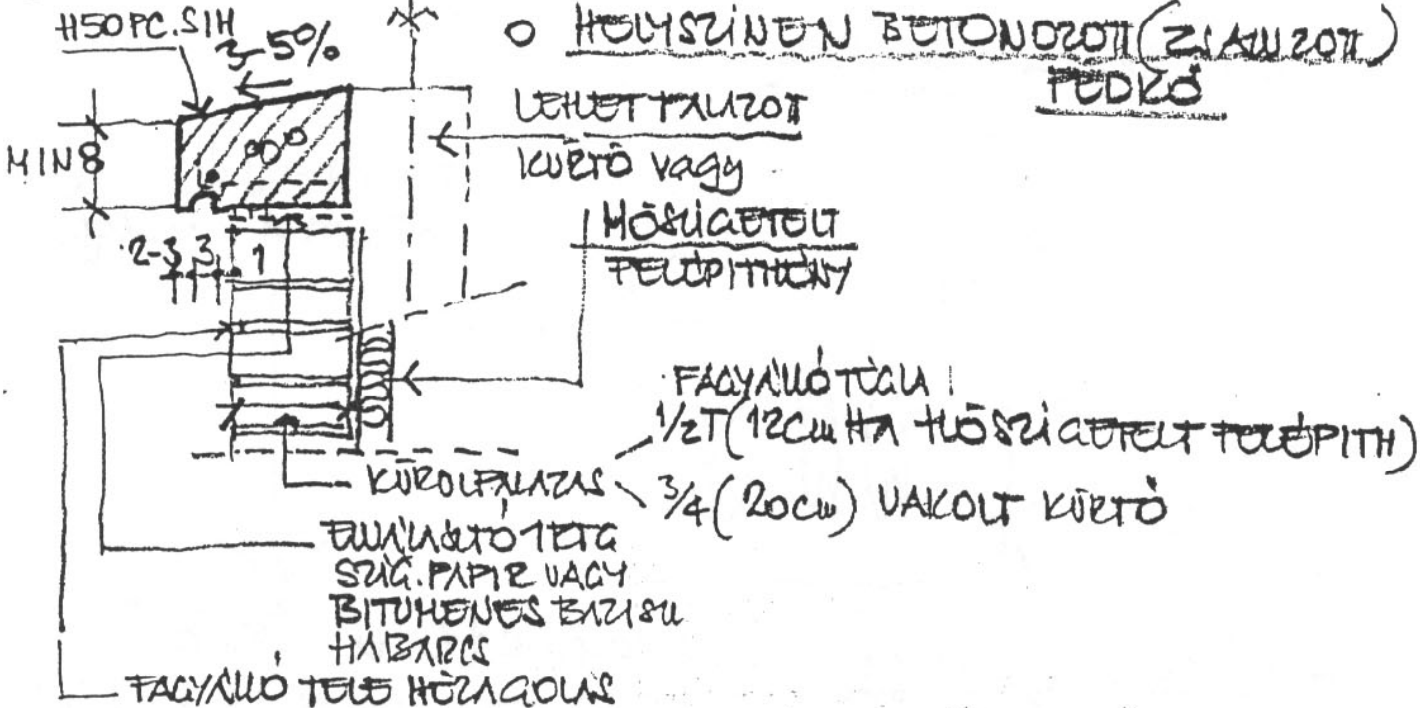 H50 PC. SIM
3-5%
○ HELYSZÍNEN BETONOZOTT (ZSALUZOTT)
FEDKŐ
LEHET FALAZOTT
KÜRTŐ vagy
HŐSZIGETELT
FELÉPITMÉNY
MIN 8
2-3 3 1
FAGYÁLLÓ TÉGLA!
1/2T (12cm HA HŐSZIGETELT FELÉPITM)
KÖRÜLFALAZÁS
3/4 (20cm) VAKOLT KÜRTŐ
ELVÁLASZTÓ RÉTG
SZIG. PAPIR VAGY
BITUMENES BÁZISU
HABARCS
FAGYÁLLÓ TELE HÉZAGOLÁS